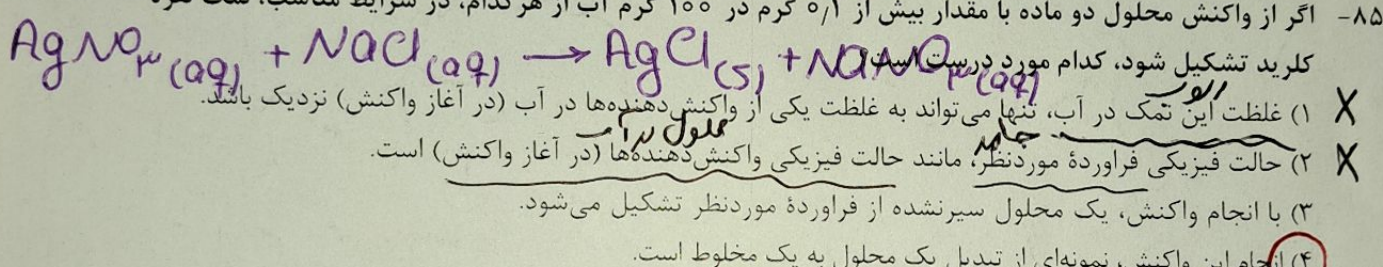 ۸۵- اگر از واکنش محلول دو ماده با مقدار بیش از ۰/۱ گرم در ۱۰۰ گرم آب از هرکدام، در شرایط مناسب،
AgNO۳(aq) + NaCl(aq) → AgCl(s) + NaNO۳(aq)
کلرید تشکیل شود، کدام مورد درست است؟
۱) غلظت این نمک در آب، تنها می‌تواند به غلظت یکی از واکنش‌دهنده‌ها در آب (در آغاز واکنش) نزدیک باشد. X
جامد محلول در آب
۲) حالت فیزیکی فراوردهٔ موردنظر، مانند حالت فیزیکی واکنش‌دهنده‌ها (در آغاز واکنش) است. X
۳) با انجام واکنش، یک محلول سیرنشده از فراوردهٔ موردنظر تشکیل می‌شود.
۴) انجام این واکنش، نمونه‌ای از تبدیل یک محلول به یک مخلوط است.